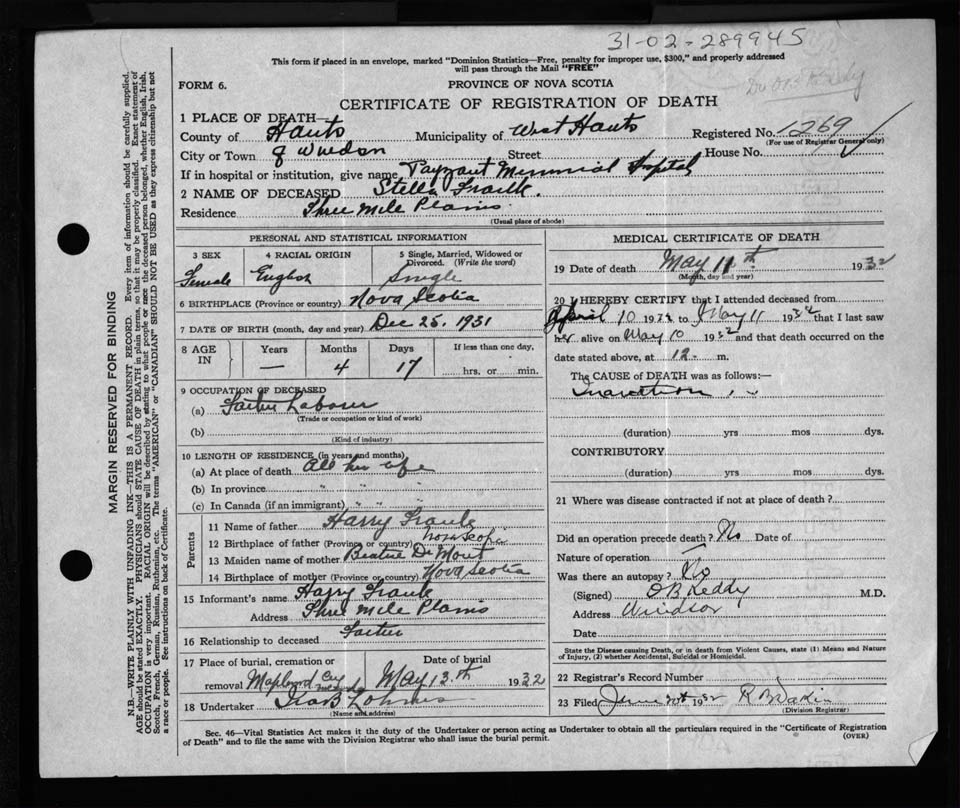 31-02-289945
This form if placed in an envelope, marked "Dominion Statistics—Free, penalty for improper use, $300," and properly addressed
will pass through the Mail "FREE"
FORM 6.
PROVINCE OF NOVA SCOTIA
CERTIFICATE OF REGISTRATION OF DEATH
1 PLACE OF DEATH—
County of Hants Municipality of West Hants Registered No. 1269
(For use of Registrar General only)
City or Town of Windsor Street House No.
If in hospital or institution, give name Payzant Memorial Hospital
2 NAME OF DECEASED Stella
Residence Three Mile Plains
(Usual place of abode)
PERSONAL AND STATISTICAL INFORMATION
3 SEX 4 RACIAL ORIGIN 5 Single, Married, Widowed or Divorced. (Write the word)
Female English Single
6 BIRTHPLACE (Province or country) Nova Scotia
7 DATE OF BIRTH (month, day and year) Dec 25, 1931
8 AGE IN Years Months Days If less than one day,
— 4 17 hrs. or min.
9 OCCUPATION OF DECEASED
(a) Laborer
(Trade or occupation or kind of work)
(b)
(Kind of industry)
10 LENGTH OF RESIDENCE (in years and months)
(a) At place of death All her life
(b) In province " " "
(c) In Canada (if an immigrant) " " "
Parents
11 Name of father Harry
12 Birthplace of father (Province or country) Nova Scotia
13 Maiden name of mother
14 Birthplace of mother (Province or country) Nova Scotia
15 Informant's name Harry
Address Three Mile Plains
16 Relationship to deceased Father
17 Place of burial, cremation or Date of burial
removal May 13th 1932
18 Undertaker
(Name and address)
MEDICAL CERTIFICATE OF DEATH
19 Date of death May 11th 1932
(Month, day and year)
20 I HEREBY CERTIFY that I attended deceased from
April 10 1932 to May 11 1932 that I last saw
her alive on May 10 1932 and that death occurred on the
date stated above, at 12 m.
The CAUSE of DEATH was as follows:—
Inanition
(duration) yrs mos dys.
CONTRIBUTORY
(duration) yrs mos dys.
21 Where was disease contracted if not at place of death?
Did an operation precede death? No Date of
Nature of operation —
Was there an autopsy? No
(Signed) O B Keddy M.D.
Address Windsor
Date
State the Disease causing Death, or in death from Violent Causes, state (1) Means and Nature
of Injury, (2) whether Accidental, Suicidal or Homicidal.
22 Registrar's Record Number
23 Filed June 1932
(Division Registrar)
Sec. 46—Vital Statistics Act makes it the duty of the Undertaker or person acting as Undertaker to obtain all the particulars required in the "Certificate of Registration
of Death" and to file the same with the Division Registrar who shall issue the burial permit.
(OVER)
MARGIN RESERVED FOR BINDING
N.B.—WRITE PLAINLY WITH UNFADING INK—THIS IS A PERMANENT RECORD. Every item of information should be carefully supplied.
AGE should be stated EXACTLY. PHYSICIANS should STATE CAUSE OF DEATH in plain terms, so that it may be properly classified. Exact statement of
OCCUPATION is very important. RACIAL ORIGIN will be described by stating to what people or race the deceased person belonged, whether English, Irish,
Scotch, French, German, Russian, Ruthenian, etc. The terms "AMERICAN" or "CANADIAN" SHOULD NOT BE USED as they express citizenship but not
a race or people. See instructions on back of Certificate.